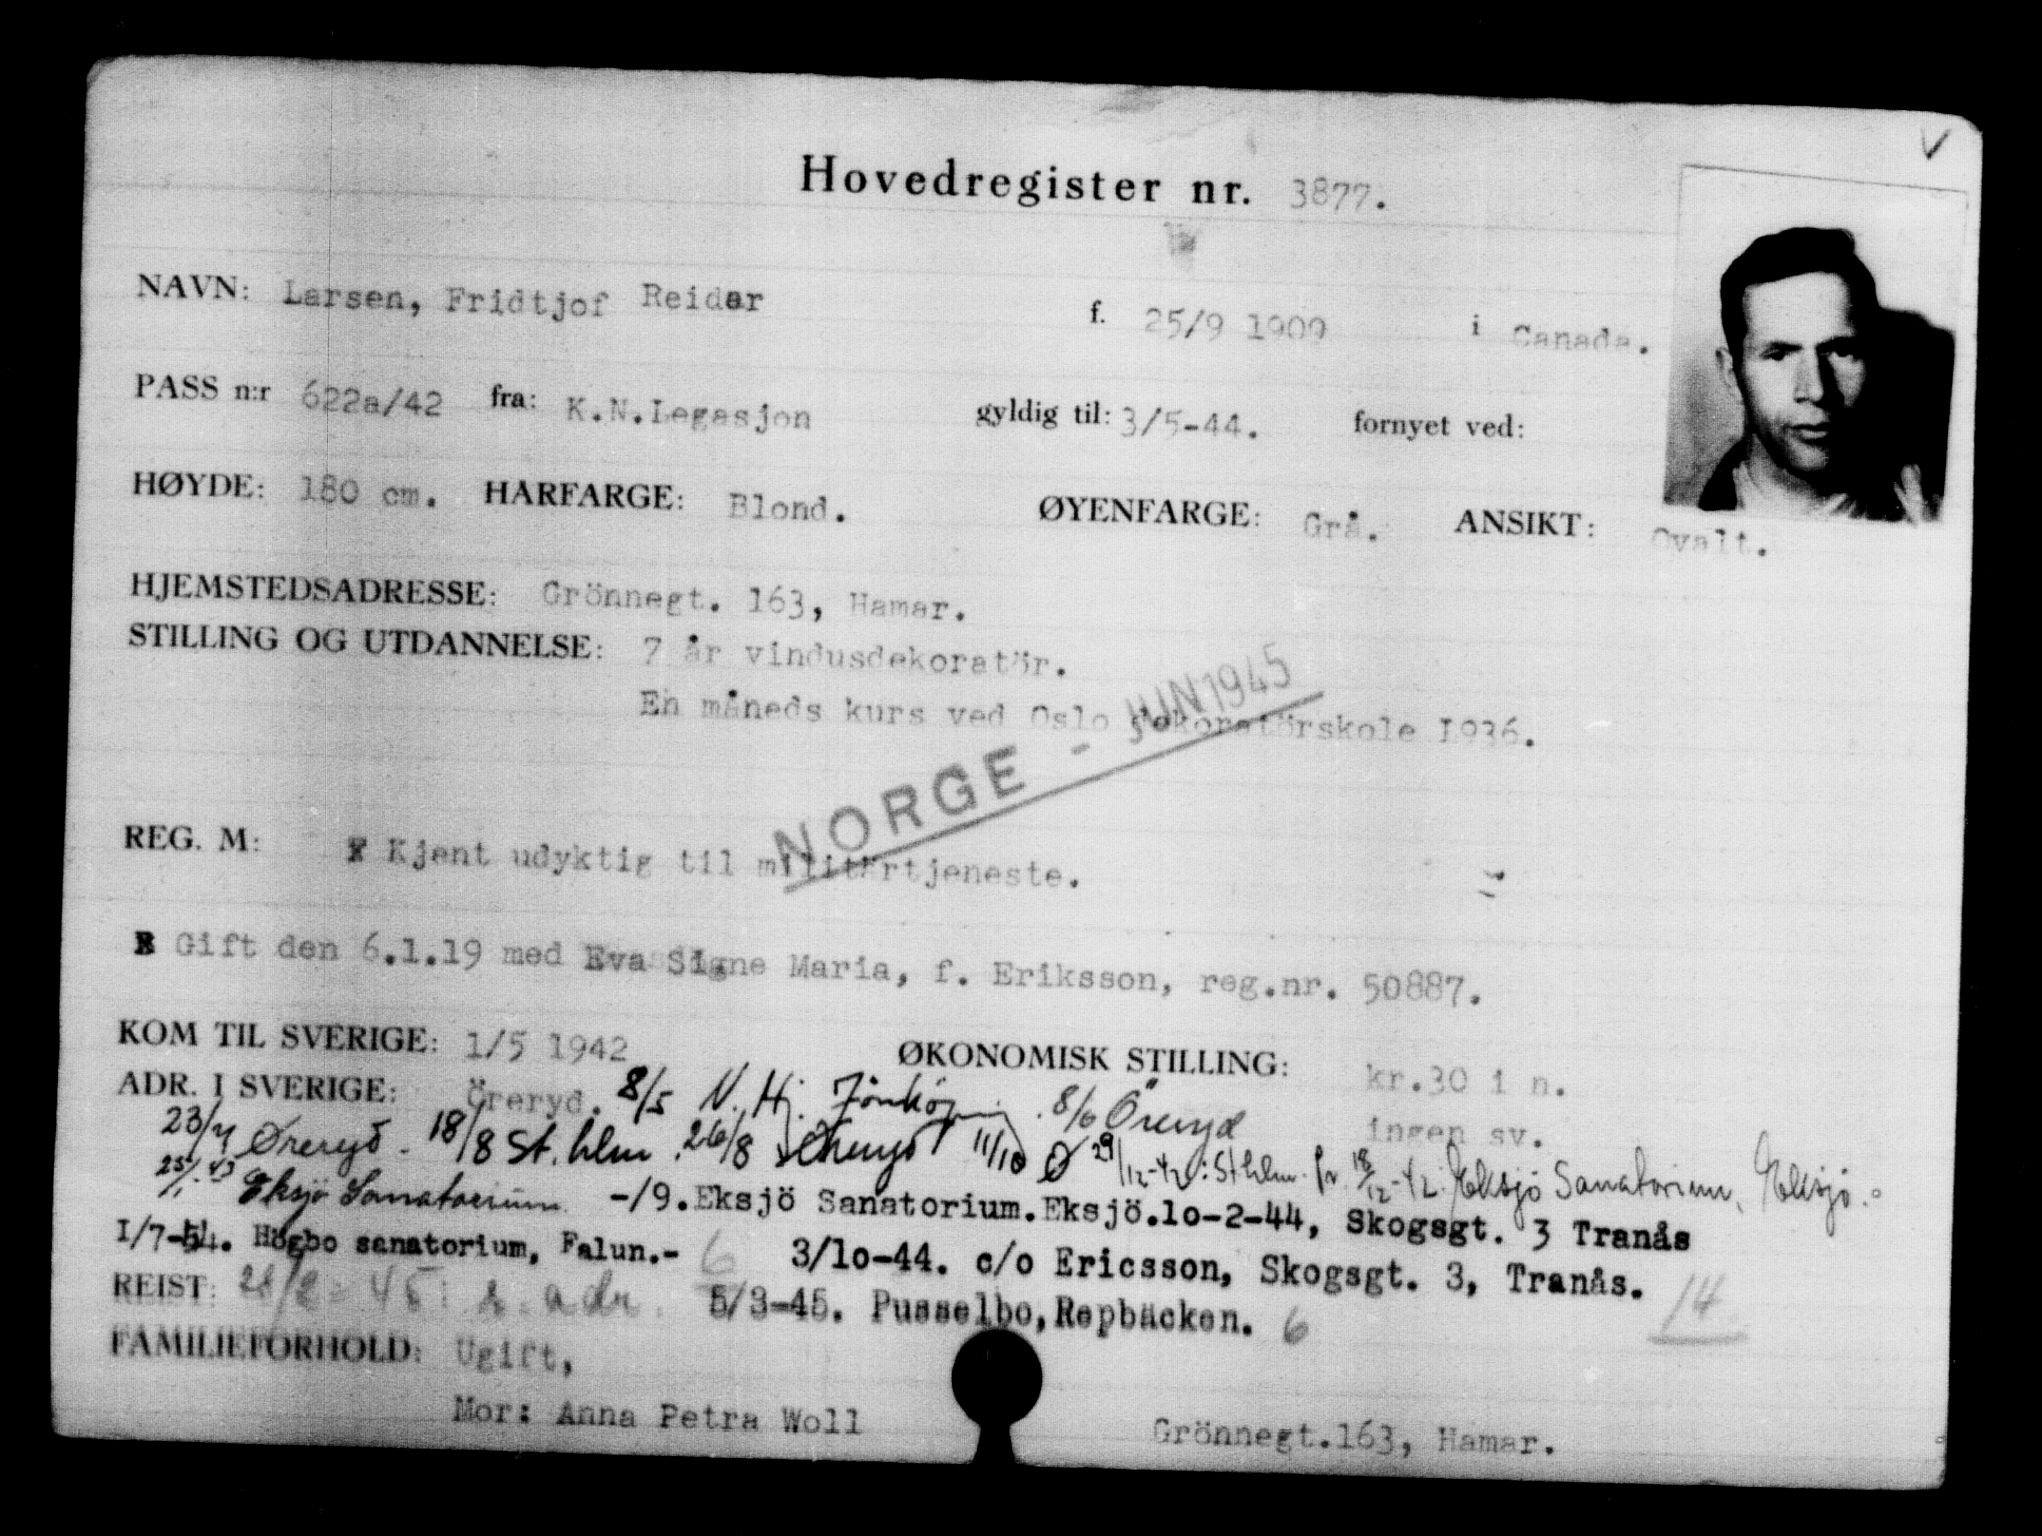 Hovedregister nr. 3877.
NAVN: Larsen, Fridtjof Reidar f. 25/9 1909 i Canada.
PASS n:r 622a/42 fra: K.N.Legasjon gyldig til: 3/5-44. fornyet ved:
HØYDE: 180 cm. HARFARGE: Blond. ØYENFARGE: Grå. ANSIKT: Ovalt.
HJEMSTEDSADRESSE: Grönnegt. 163, Hamar.
STILLING OG UTDANNELSE: 7 år vindusdekoratör.
En måneds kurs ved Oslo dekoratörskole I936.
NORGE - JUN 1945
REG. M: Kjent udyktig til militärtjeneste.
Gift den 6.1.19 med Eva Signe Maria, f. Eriksson, reg.nr. 50887.
KOM TIL SVERIGE: 1/5 1942 ØKONOMISK STILLING: kr.30 i n.
ADR. I SVERIGE: Öreryd. 8/5 N. Hj. Jönköping. 8/6 Öreryd ingen sv.
23/7 Øreryd - 18/8 St. hlm. 26/8 Øreryd 11/10 Ø 29/12-42: Sthlm. fr. 18/12-42: Eksjö Sanatorium, Eksjö.
25/1-43 Eksjö Sanatorium -/9. Eksjö Sanatorium. Eksjö. 1o-2-44, Skogsgt. 3 Tranås
I/7-54. Högbo sanatorium, Falun.- 6 3/1o-44. c/o Ericsson, Skogsgt. 3, Tranås.
REIST: 28/2-45: s. adr. 5/3-45. Pusselbo, Repbäcken. 6 14
FAMILIEFORHOLD: Ugift,
Mor: Anna Petra Woll Grönnegt.163, Hamar.